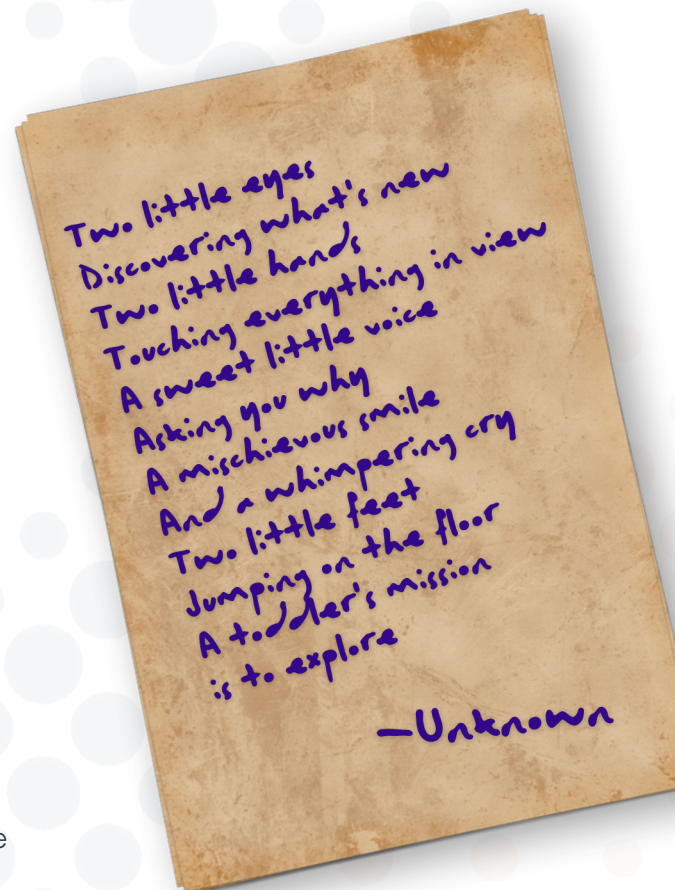 Two little eyes
Discovering what's new
Two little hands
Touching everything in view
A sweet little voice
Asking you why
A mischievous smile
And a whimpering cry
Two little feet
Jumping on the floor
A toddler's mission
is to explore
—Unknown
e